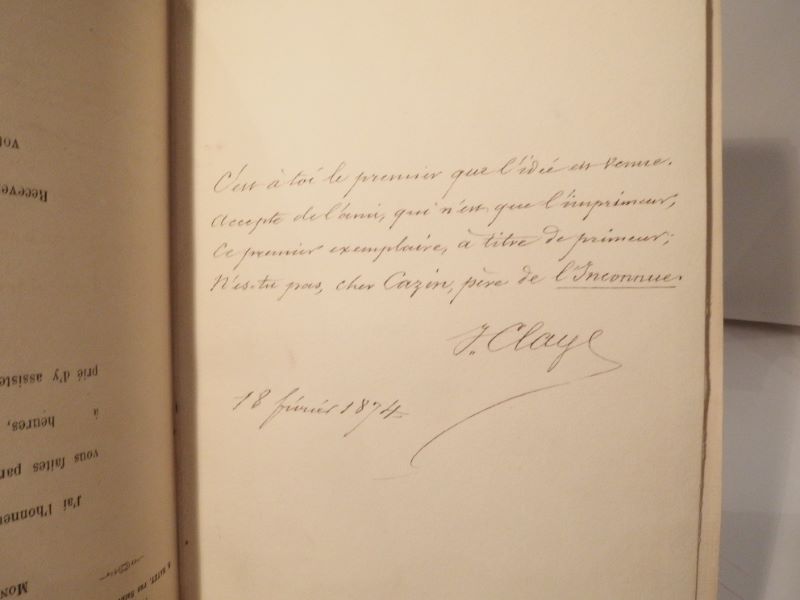 C'est à toi le premier que l'idée est venue.
Accepte de l'ami, qui n'est que l'imprimeur,
Ce premier exemplaire, à titre de primeur;
N'es-tu pas, cher Cazin, père de l'Inconnue.
J. Claye
18 février 1874
Mon
J'ai l'honneu
vous faites par
à heures,
prié d'y assiste
Receve
vot